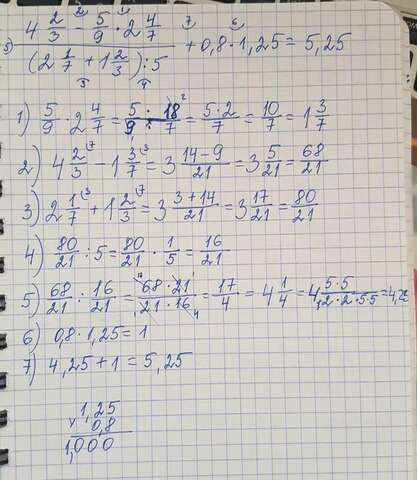 5) (4 2/3 - 5/9 · 2 4/7) / ((2 1/7 + 1 2/3) : 5) + 0,8 · 1,25 = 5,25
1) 5/9 · 2 4/7 = (5 · 18)/(9 · 7) = (5·2)/7 = 10/7 = 1 3/7
2) 4 2/3 - 1 3/7 = 3 (14-9)/21 = 3 5/21 = 68/21
3) 2 1/7 + 1 2/3 = 3 (3+14)/21 = 3 17/21 = 80/21
4) 80/21 : 5 = 80/21 · 1/5 = 16/21
5) 68/21 : 16/21 = (68·21)/(21·16) = 17/4 = 4 1/4 = 4 (5·5)/(2·2·5·5) = 4,25
6) 0,8 · 1,25 = 1
7) 4,25 + 1 = 5,25
1,25
× 0,8
1,000